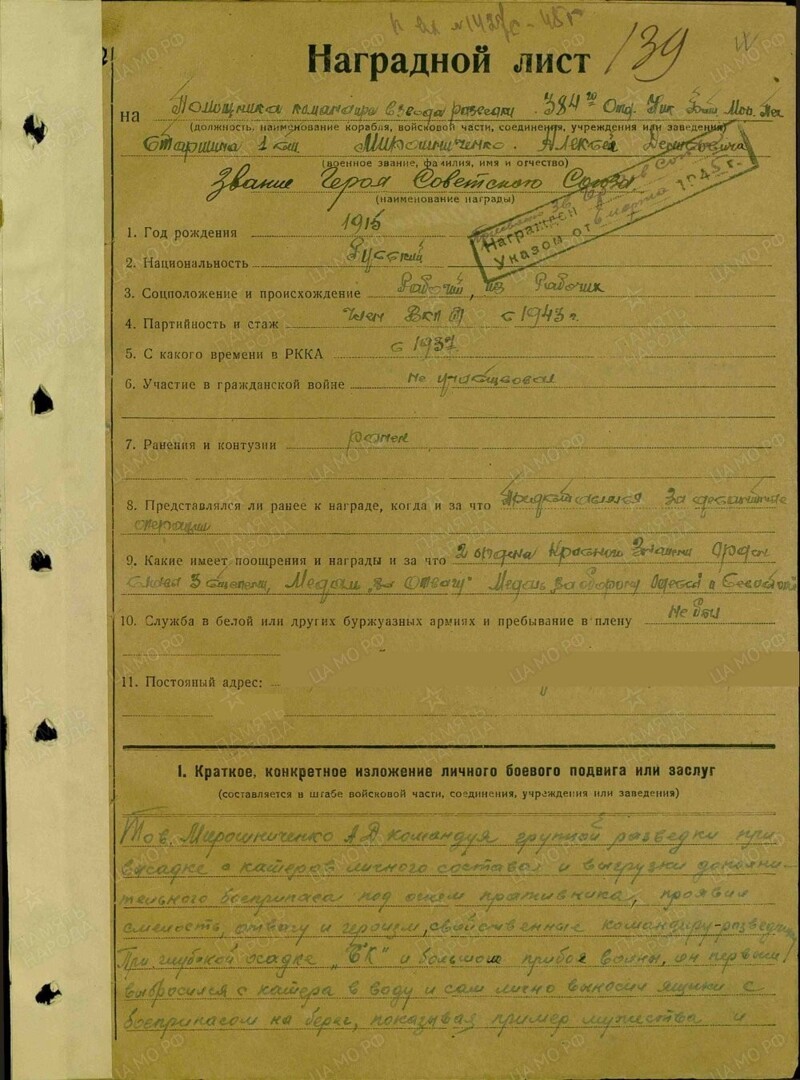 Наградной лист 139
на Помощника командира взвода разведки 384го Отд.
(должность, наименование корабля, войсковой части, соединения, учреждения или заведения)
Старшина 1 ст. Мирошниченко Алексей
(военное звание, фамилия, имя и отчество)
Звание Героя Советского Союза
(наименование награды)
Награжден
Указом от 1945 г.
1. Год рождения 1916
2. Национальность Русский
3. Соцположение и происхождение Рабочий, из Рабочих
4. Партийность и стаж Член с 1943 г.
5. С какого времени в РККА с 1937
6. Участие в гражданской войне Не участвовал
7. Ранения и контузии ранен
8. Представлялся ли ранее к награде, когда и за что Представлялся За десантные
операции
9. Какие имеет поощрения и награды и за что 2 ордена Красного Знамени Орден
Славы 3 степени, Медаль "за Отвагу" Медаль за оборону Одессы и
10. Служба в белой или других буржуазных армиях и пребывание в плену Не был
11. Постоянный адрес:
I. Краткое, конкретное изложение личного боевого подвига или заслуг
(составляется в штабе войсковой части, соединения, учреждения или заведения)
Тов. Мирошниченко А Д командуя группой разведки при
высадке с катеров личного состава и выгрузки
боеприпаса под огнем противника, проявил
смелость, отвагу и героизм, свойственные командиру-разведчику
При глубокой осадке "БК" и большом прибое волны, он первым
выбросился с катера в воду и сам лично выносил ящики с
боеприпасом на берег, показывая пример мужества и